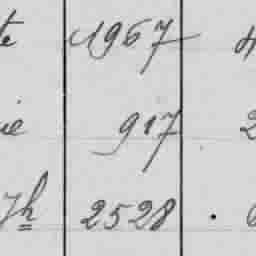 te 1967 4
ie 917 2
7h 2528 .